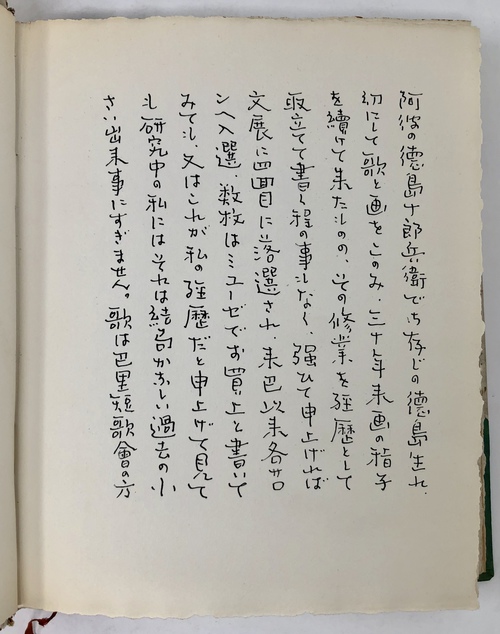 阿波の徳島十郎兵衛でお存じの徳島生れ、
幼にして歌と画をこのみ、三十年来画の稽子
を續けて来たものの、その修業を経歴として
取立てて書く程の事もなく、強ひて申上げれば
文展に四回目に落選され、来巴以来各サロ
ンへ入選、数枚はミユーゼでお買上と書いて
みても、又はこれが私の経歴だと申上げて見て
も研究中の私にはそれは結局かなしい過去の小
さい出来事にすぎません。歌は巴里短歌會の方